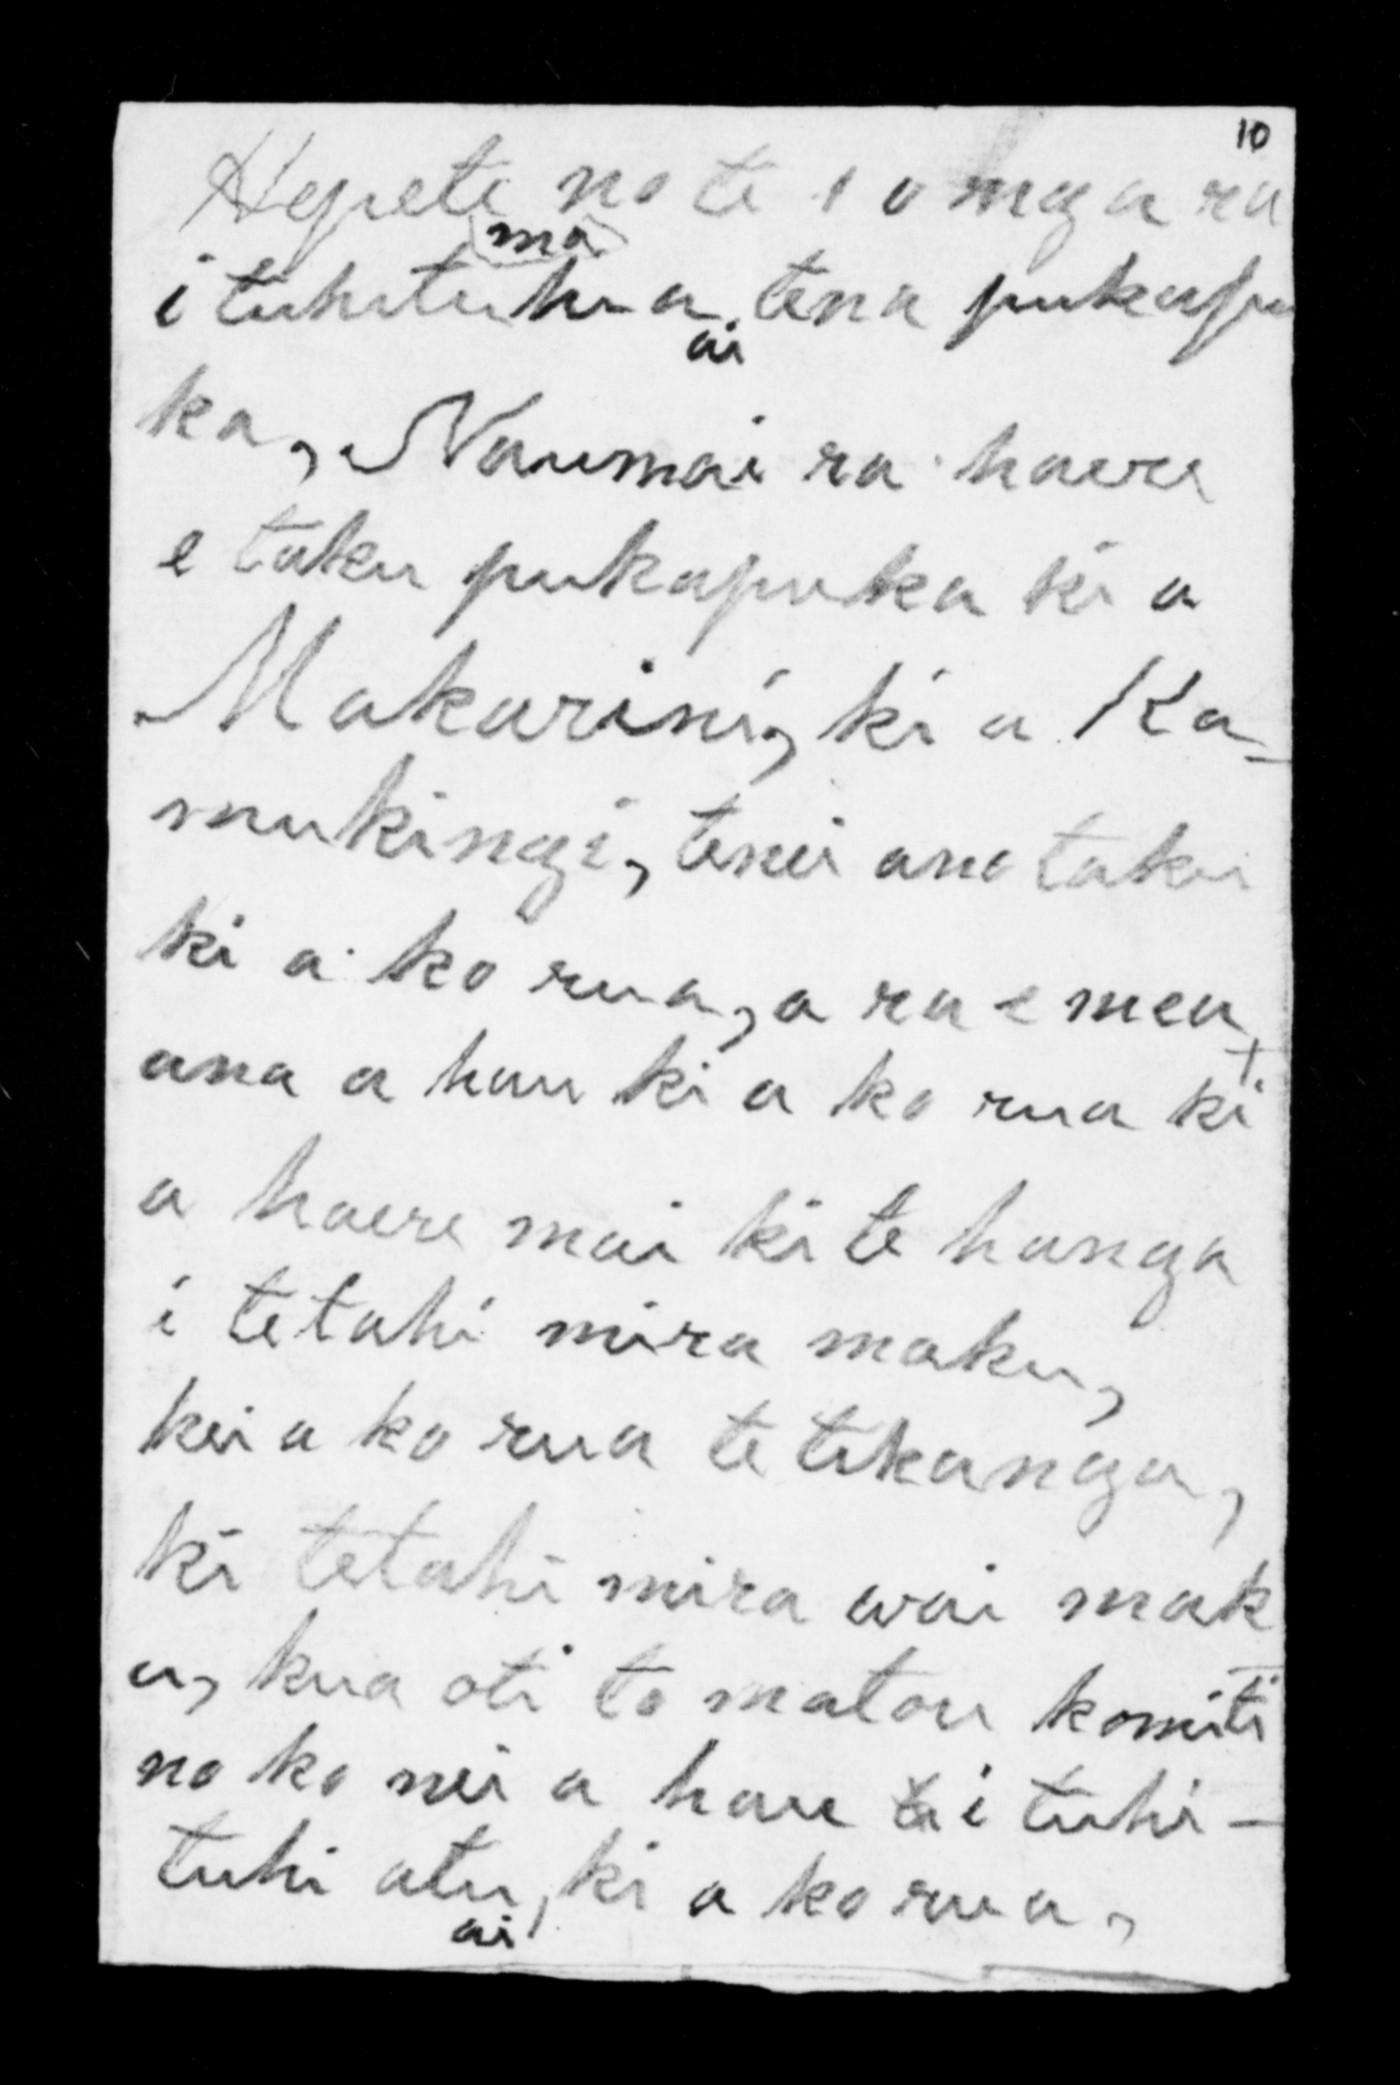 10
Hepete no te 10 nga ra
ma
i tuhituhia tena pukapu
ai
ka, Naumai ra haere
e taku pukapuka ki a
Makarini, ki a Ka-
mukingi, tenei ano taku
ki a ko rua, a ra e mea
ana a hau ki a ko rua ki
a haere mai ki te hanga
i tetahi mira maku,
kei a ko rua te tikanga,
ki tetahi mira wai mak
u, kua oti to matou komiti
no ko nei a hau i tuhi-
tuhi atu, ki a ko rua,
ai